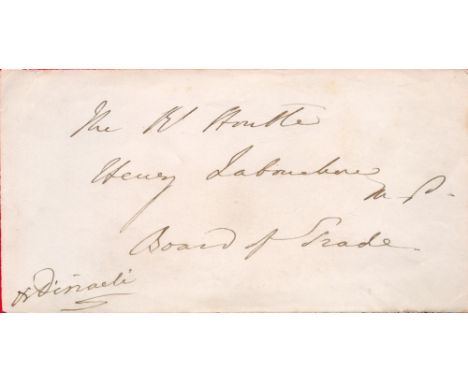 The Rt Honble
Henry Labouchere
M.P.
Board of Trade
Disraeli